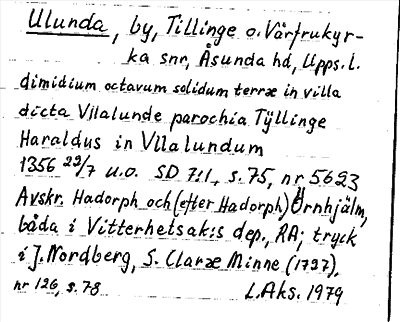 Ulunda, by, Tillinge o. Vårfrukyr-
ka snr, Åsunda hd, Upps. l.
dimidium octavum solidum terræ in villa
dicta Vllalunde parochia Tÿllinge
Haraldus in Vllalundum
1356 29/7 u.o. SD 7:1, s. 75, nr 5623
Avskr. Hadorph och (efter Hadorph) Örnhjälm,
båda i Vitterhetsak:s dep., RA; tryck
i J. Nordberg, S. Claræ Minne (1727),
nr 126, s. 78 L. Aks. 1979